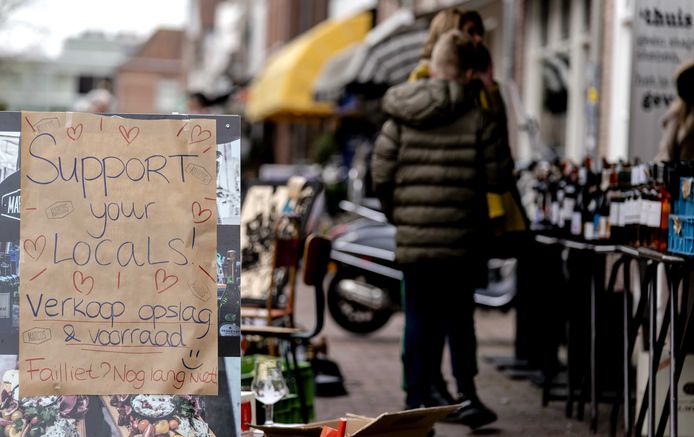 SUPPORT
your
LOCALS!
VERKOOP OPSLAG
& VOORRAAD
FAILLIET? NOG LANG NIET!
thuis